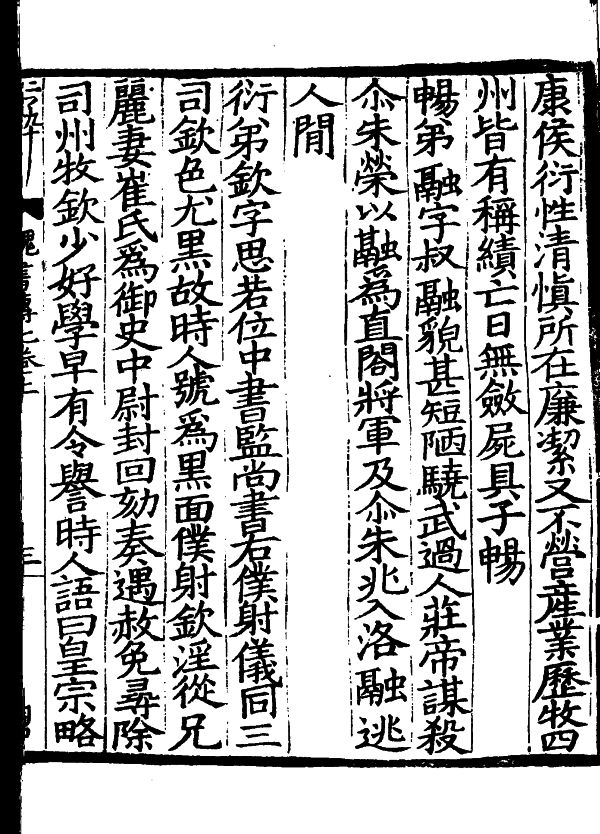 康侯衍性清慎所在廉潔又不營産業歷牧四
州皆有稱績亡日無斂屍具子暢
暢弟融字叔融貌甚短陋驍武過人莊帝謀殺
尒朱榮以融爲直閤將軍及尒朱兆入洛融逃
人間
衍弟欽字思若位中書監尚書右僕射儀同三
司欽色尤黒故時人號爲黒面僕射欽淫從兄
麗妻崔氏爲御史中尉封回劾奏遇赦免尋除
司州牧欽少好學早有令譽時人語曰皇宗略
魏書傳七卷上 三